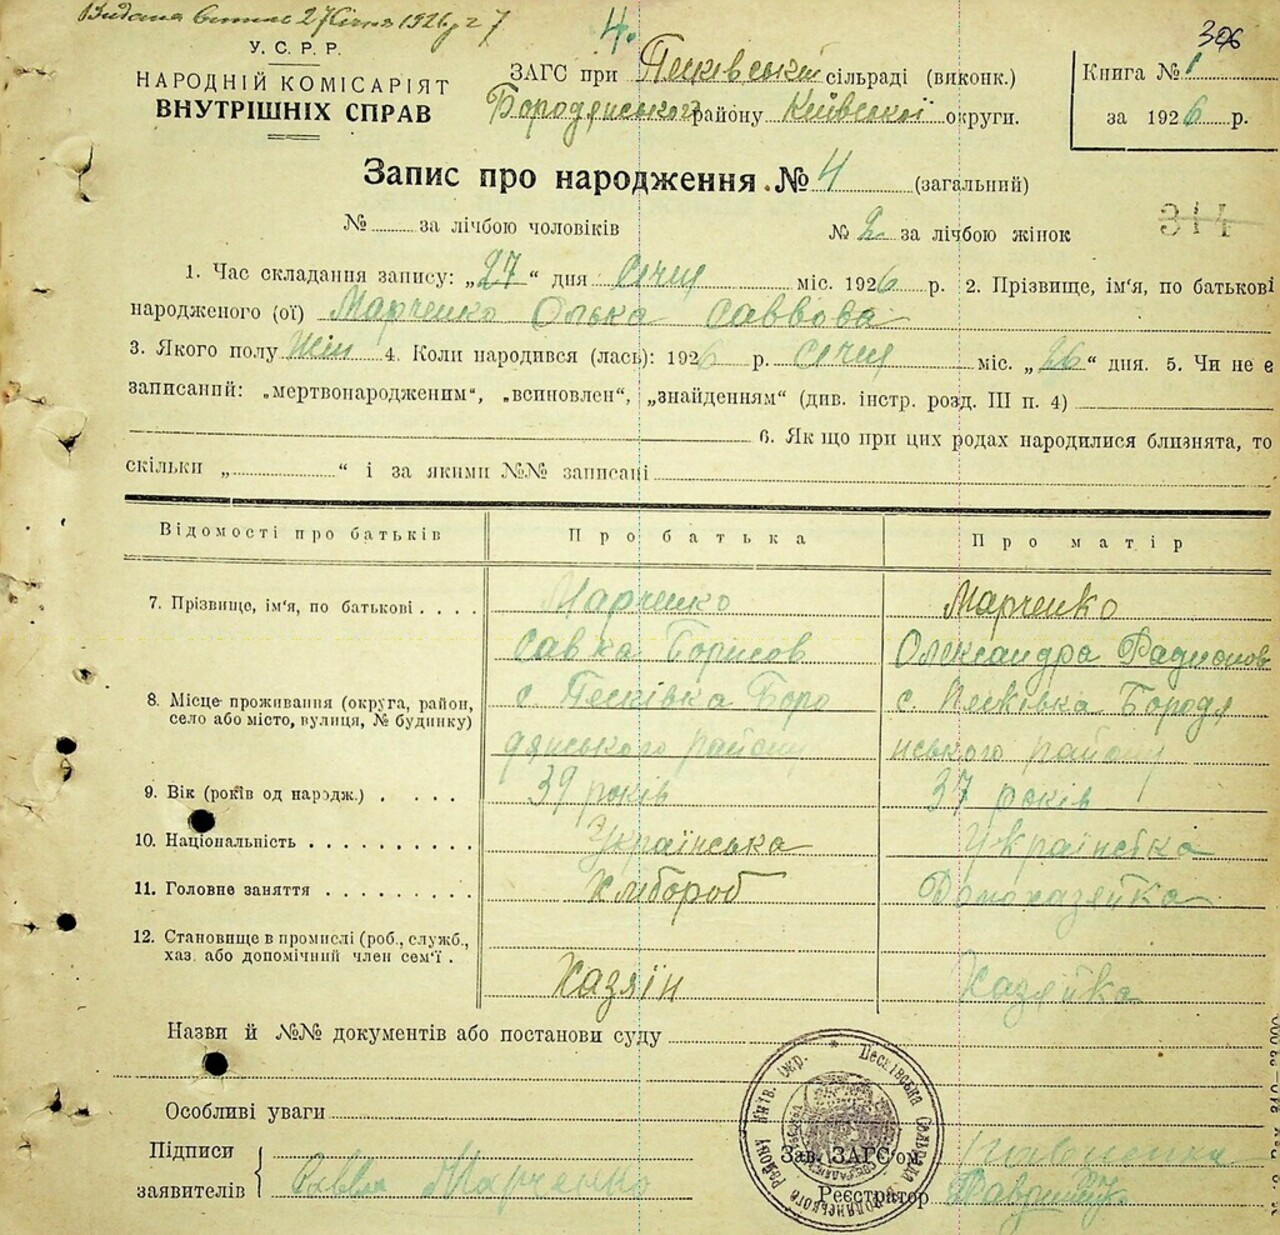 Видана 27 Січня 1926 р.
4.
306
У. С. Р. Р.
НАРОДНІЙ КОМІСАРІЯТ
ВНУТРІШНІХ СПРАВ
ЗАГС при Песківській сільраді (виконк.)
Бородянського району Київської округи.
Книга № 1
за 1926 р.
Запис про народження № 4 (загальний)
№ за лічбою чоловіків
№ 2 за лічбою жінок
314
1. Час складання запису: „27“ дня Січня міс. 1926 р. 2. Прізвище, ім'я, по батькові
народженого (ої) Марченко Олька Саввова
3. Якого полу Жін 4. Коли народився (лась): 1926 р. Січня міс. „26“ дня. 5. Чи не є
записаний: „мертвонародженим“, „всиновлен“, „знайденням“ (див. інстр. розд. III п. 4)
6. Як що при цих родах народилися близнята, то
скільки „ “ і за якими №№ записані
Відомості про батьків
Про батька
Про матір
7. Прізвище, ім'я, по батькові
Марченко
Савка Борисов
Марченко
Олександра Радионов
8. Місце проживання (округа, район,
село або місто, вулиця, № будинку)
с. Песківка Боро
дянського району
с. Песківка Бородя
нського району
9. Вік (років од народж.)
39 років
37 років
10. Національність
Українська
Українська
11. Головне заняття
Хлибороб
Домохазяйка
12. Становище в промислі (роб., служб.,
хаз. або допомічний член сем'ї.
Хазяїн
Хазяйка
Назви й №№ документів або постанови суду
Особливі уваги
Підписи
заявителів
Савва Марченко
Зав. ЗАГС'ом
Реєстратор
* Песківська Сільрада Бородянського Району Київ. Окр.